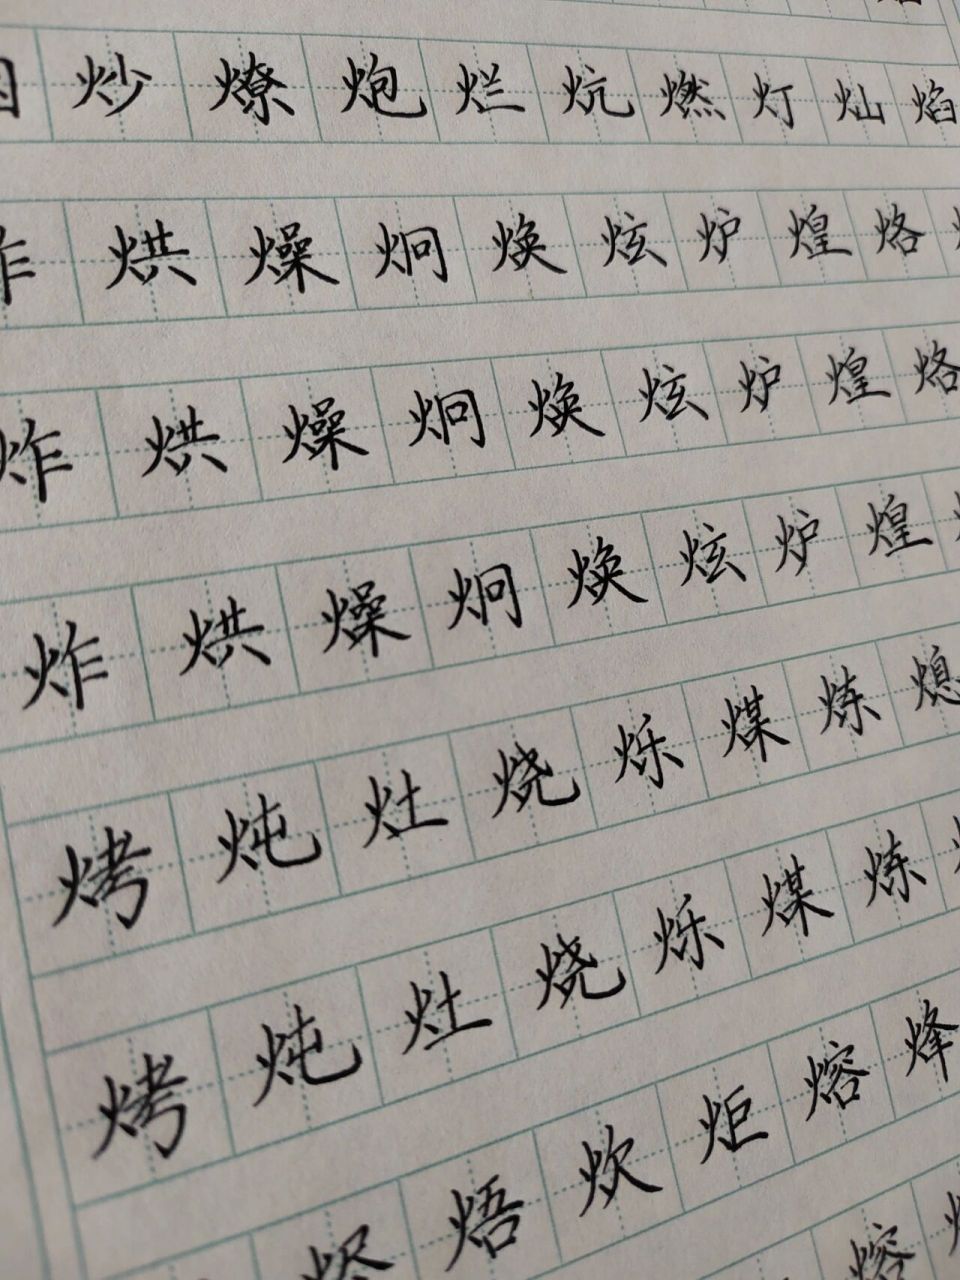 炒燎炮烂炕燃灯灿焰
炸烘燥炯焕炫炉煌烙
炸烘燥炯焕炫炉煌烙
炸烘燥炯焕炫炉煌
烤炖灶烧烁煤炼熄
烤炖灶烧烁煤炼
烬焐炊炬熔烽
熔